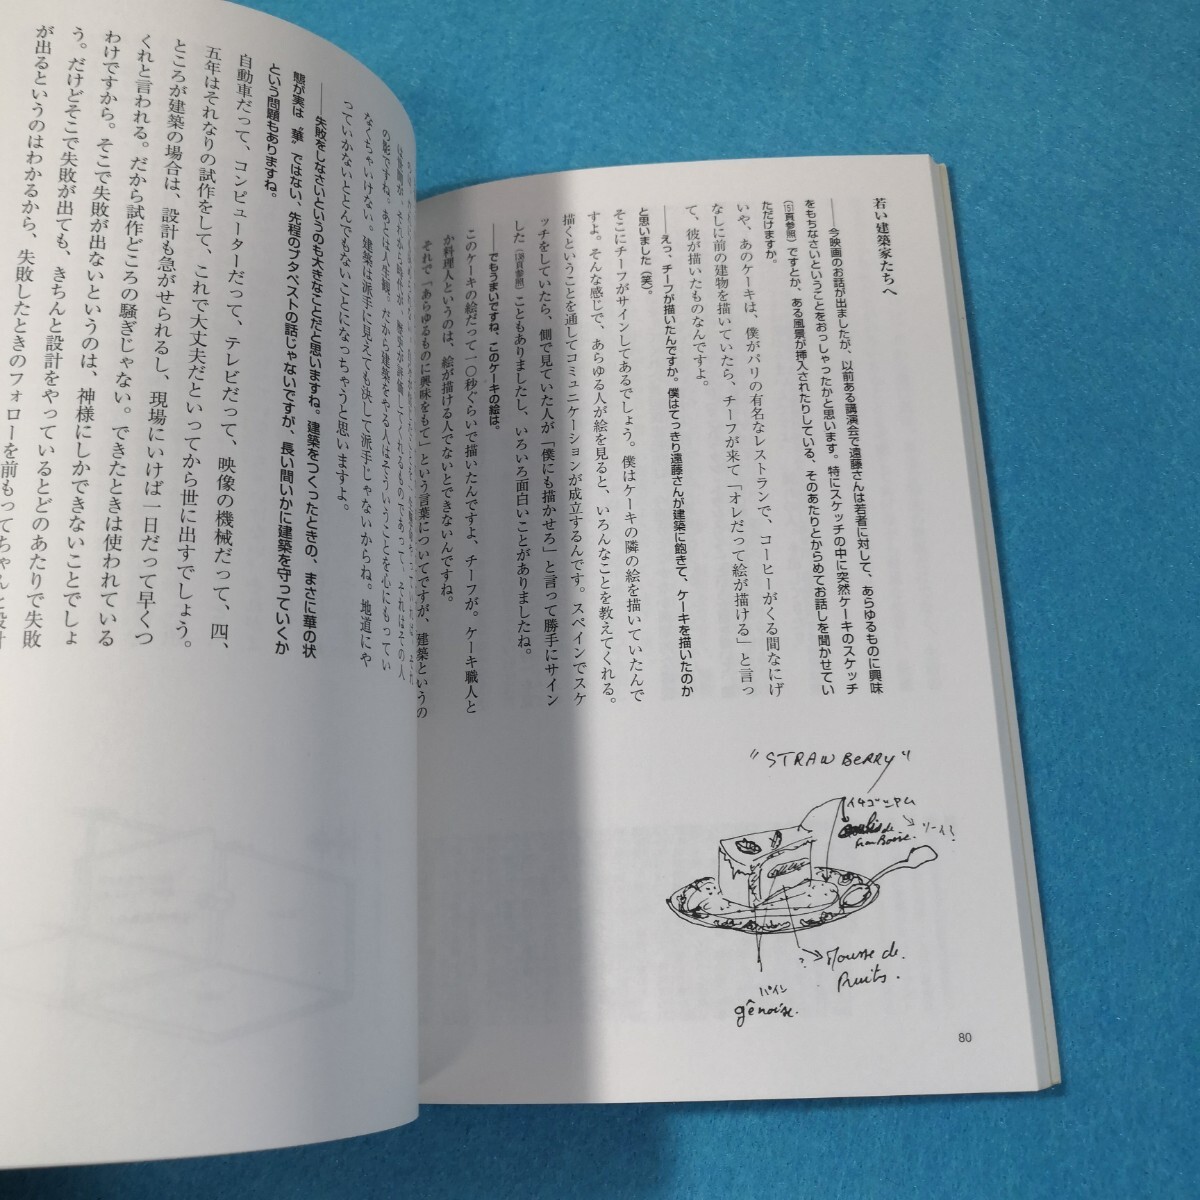 若い建築家たちへ
――今映画のお話が出ましたが、以前ある講演会で遠藤さんは若者に対して、あらゆるものに興味
をもちなさいということをおっしゃったかと思います。特にスケッチの中に突然ケーキのスケッチ
(15頁参照)ですとか、ある風景が挿入されたりしている、そのあたりとからめてお話しを聞かせてい
ただけますか。
いや、あのケーキは、僕がパリの有名なレストランで、コーヒーがくる間なにげ
なしに前の建物を描いていたら、チーフが来て「オレだって絵が描ける」と言っ
て、彼が描いたものなんですよ。
――えっ、チーフが描いたんですか。僕はてっきり遠藤さんが建築に飽きて、ケーキを描いたのか
と思いました(笑)。
そこにチーフがサインしてあるでしょう。僕はケーキの隣の絵を描いていたんで
すよ。そんな感じで、あらゆる人が絵を見ると、いろんなことを教えてくれる。
描くということを通してコミュニケーションが成立するんです。スペインでスケ
ッチをしていたら、側で見ていた人が「僕にも描かせろ」と言って勝手にサイン
した こともありましたし、いろいろ面白いことがありましたね。
――でもうまいですね、このケーキの絵は。
このケーキの絵だって一〇秒ぐらいで描いたんですよ、チーフが。ケーキ職人と
か料理人というのは、絵が描ける人でないとできないんですね。
それで「あらゆるものに興味をもて」という言葉についてですが、建築というの
"STRAWBERRY"
de
framboise.
ソース?
?
Mousse de
fruits.
パイン
génoise.
80
は時間が、それから時代が、歴史が評価してくれるものであって、それはその人
の影ですね。あとは人生観。だから建築をやる人はそういうことを心にもってい
なくちゃいけない。建築は派手に見えても決して派手じゃないからね。地道にや
っていかないととんでもないことになっちゃうと思いますよ。
――失敗をしなさいというのも大きなことだと思いますね。建築をつくったときの、まさに華の状
態が実は〝華〟ではない、先程のブタペストの話じゃないですが、長い間いかに建築を守っていくか
という問題もありますね。
自動車だって、コンピューターだって、テレビだって、映像の機械だって、四、
五年はそれなりの試作をして、これで大丈夫だといってから世に出すでしょう。
ところが建築の場合は、設計も急がせられるし、現場にいけば一日だって早くつ
くれと言われる。だから試作どころの騒ぎじゃない。できたときは使われている
わけですから。そこで失敗が出ないというのは、神様にしかできないことでしょ
う。だけどそこで失敗が出ても、きちんと設計をやっているとどのあたりで失敗
が出るというのはわかるから、失敗したときのフォローを前もってちゃんと設計